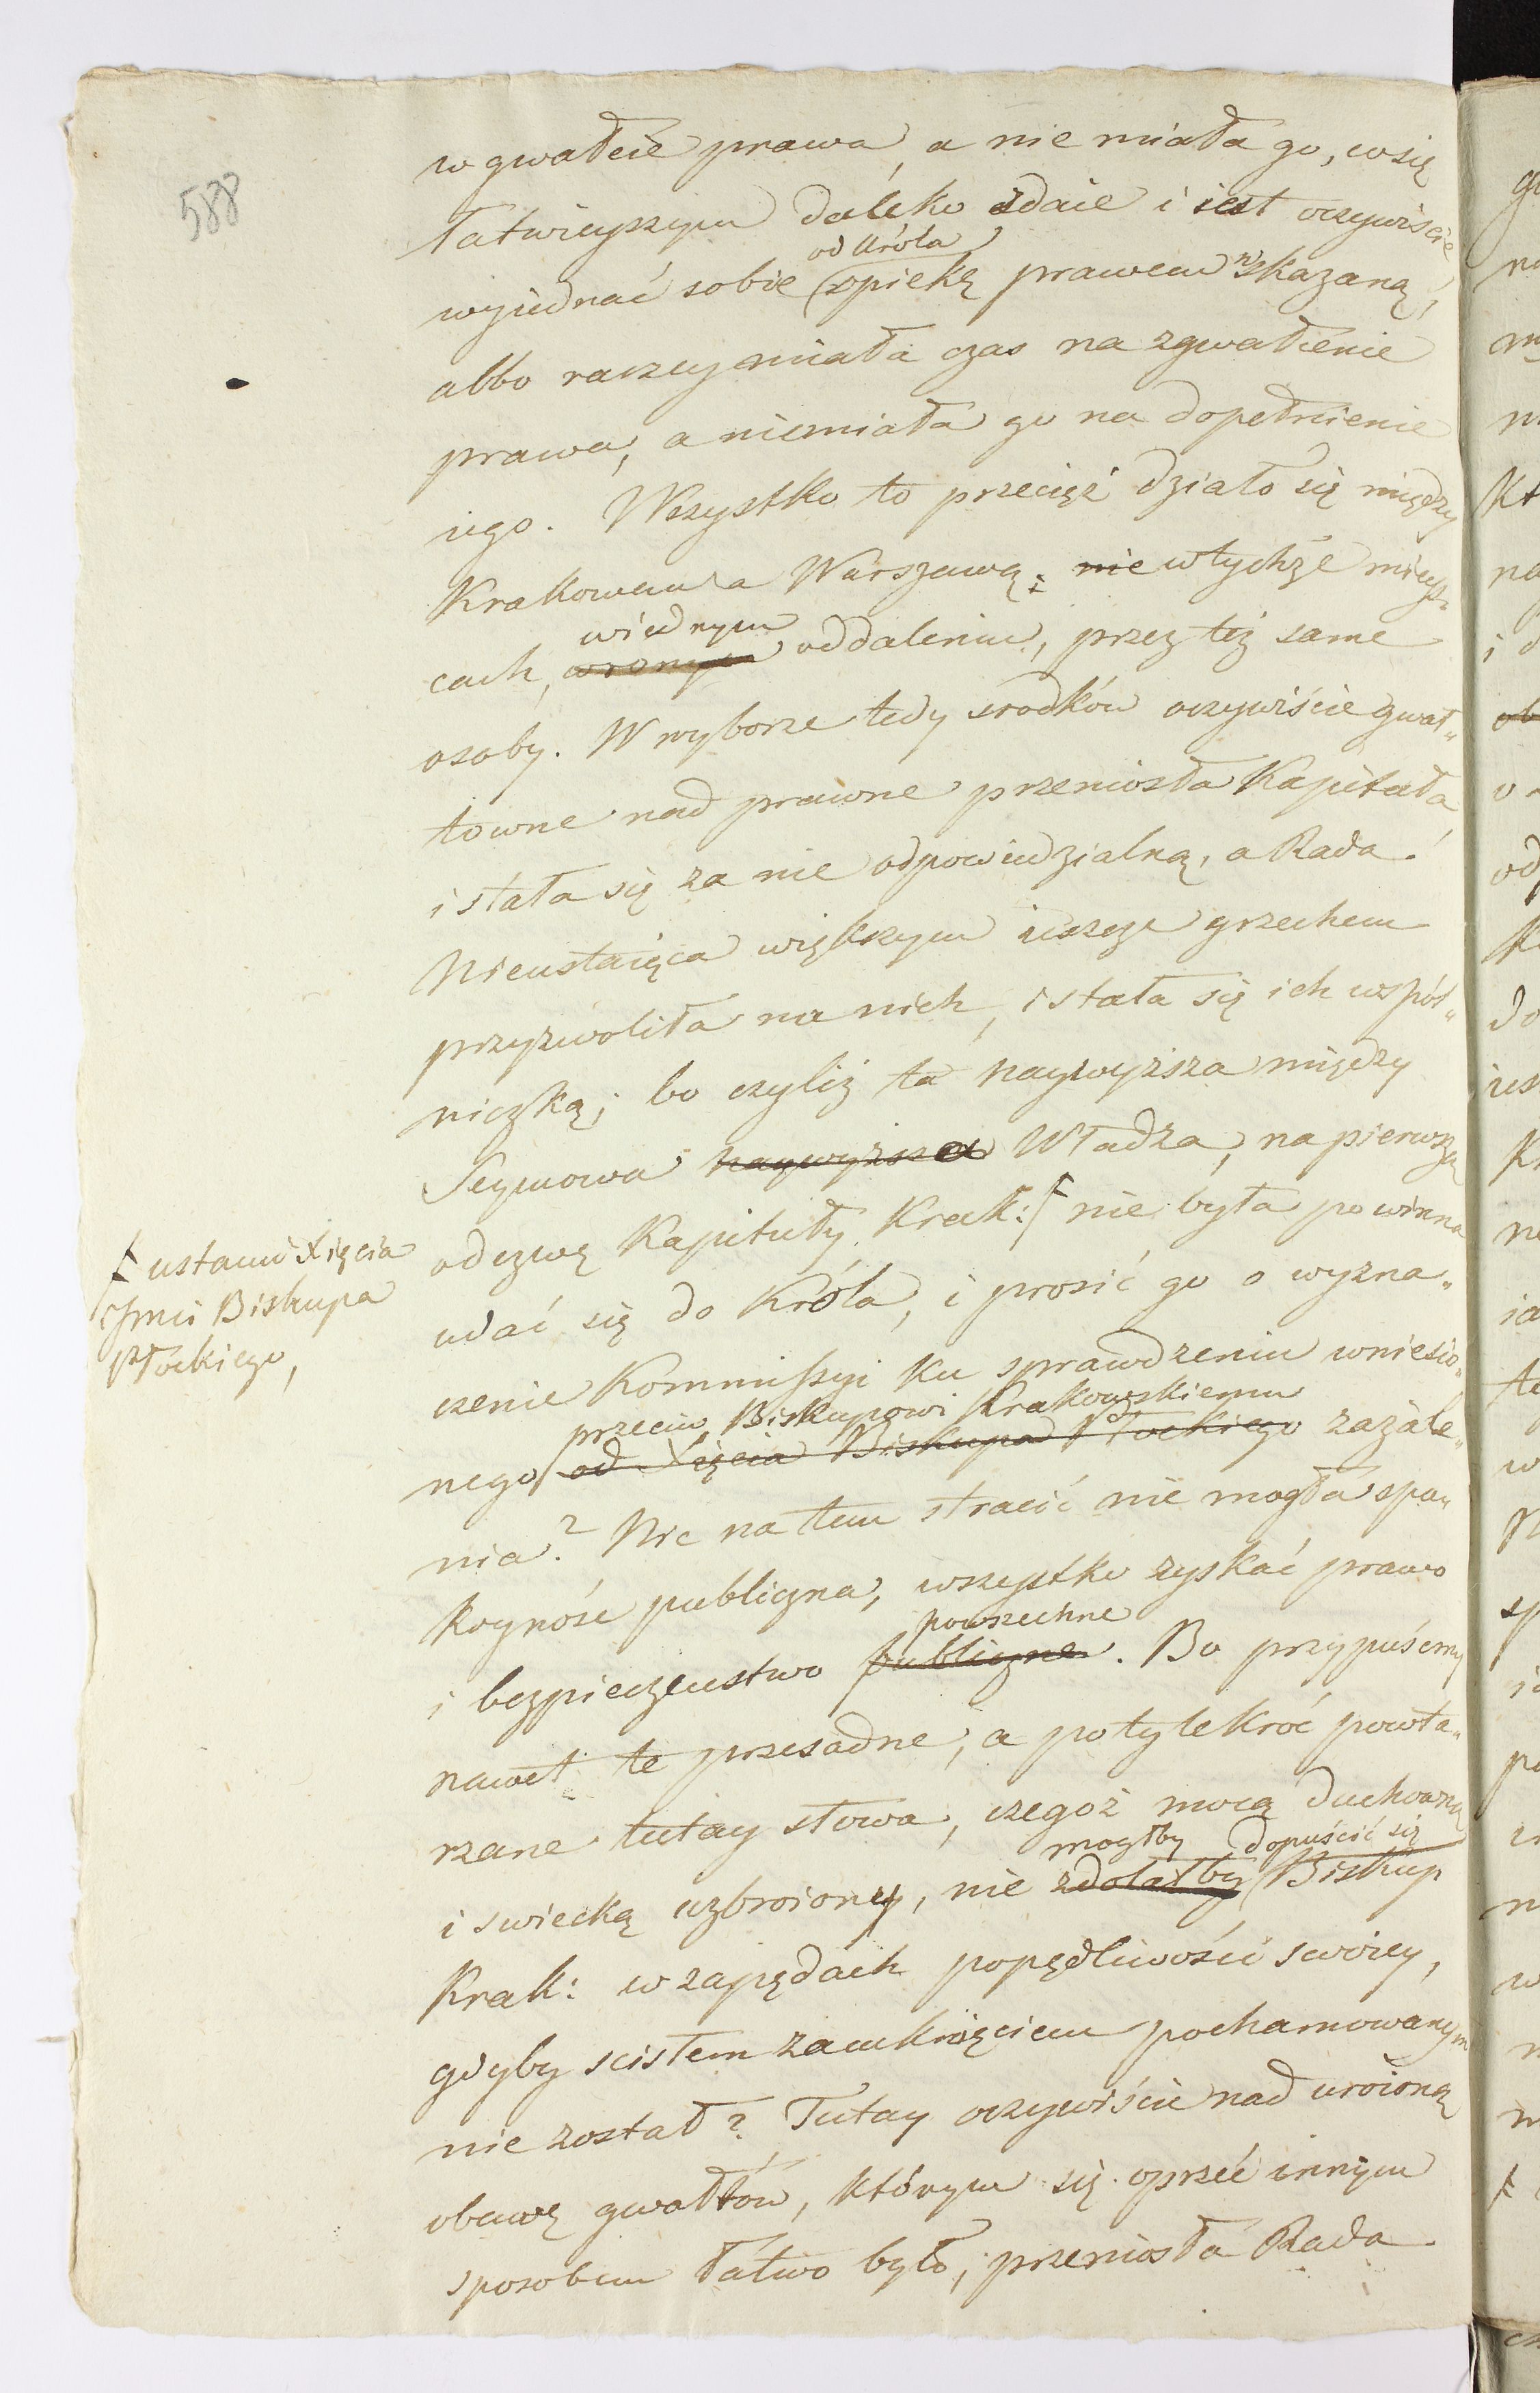 588
w gwałcie prawa, a nie miała go, co się
łatwieyszym daleko zdaie i iest oczywiście
od Króla
wyiednać sobie opiekę prawem wskazaną,
albo raczey miała czas na zgwałcenie
prawa, a niemiała go na dopełnienie
iego. Wszystko to przecięż działo się między
Krakowem a Warszawą; nie w tychże miejs-
w iednym
cach, oddaleniu, przez też same
osoby. W wyborze tedy srodków oczywiście gwał„
towne nad prawne przeniosła Kapituła
i stała się za nie odpowiedzialną, a Rada
Nieustaiąca większym ieszcze grzechem
przyzwoliła na nich, i stała się ich wspól„
niczką; bo czyliż ta naywyższa między
Seymowa naywyższa Władza, na pierwszą
odezwę Kapituły Krak: nie była powinna
ustami Xięcia
Jmci Biskupa
Płockiego,
udać się do Króla, i prosić go o wyzna„
czenie Kommissyi ku sprawdzeniu wniesio„
przeciw Biskupowi Krakowskiemu
nego od Xięcia Biskupa Płockiego zażale„
nia? Nic na tem stracić nie mogła spo„
koyność publiczna, wszystko zyskać prawo
powszechne
i bezpieczeństwo publiczne. Bo przypuśćmy
nawet te przesadne, a potylekroć powta„
rzane tutay słowa, czegoż mocą duchowną
mogłby dopuścić się
i swiecką uzbroiony, nie zdołałby Biskup
Krak: w zapędach popędliwości swoiey,
gdyby scisłem zamknięciem pohamowanym
nie został? Tutay oczywiście nad uroioną
obawę gwałtów, którym się oprzeć innym
sposobem łatwo było, przeniosła Rada